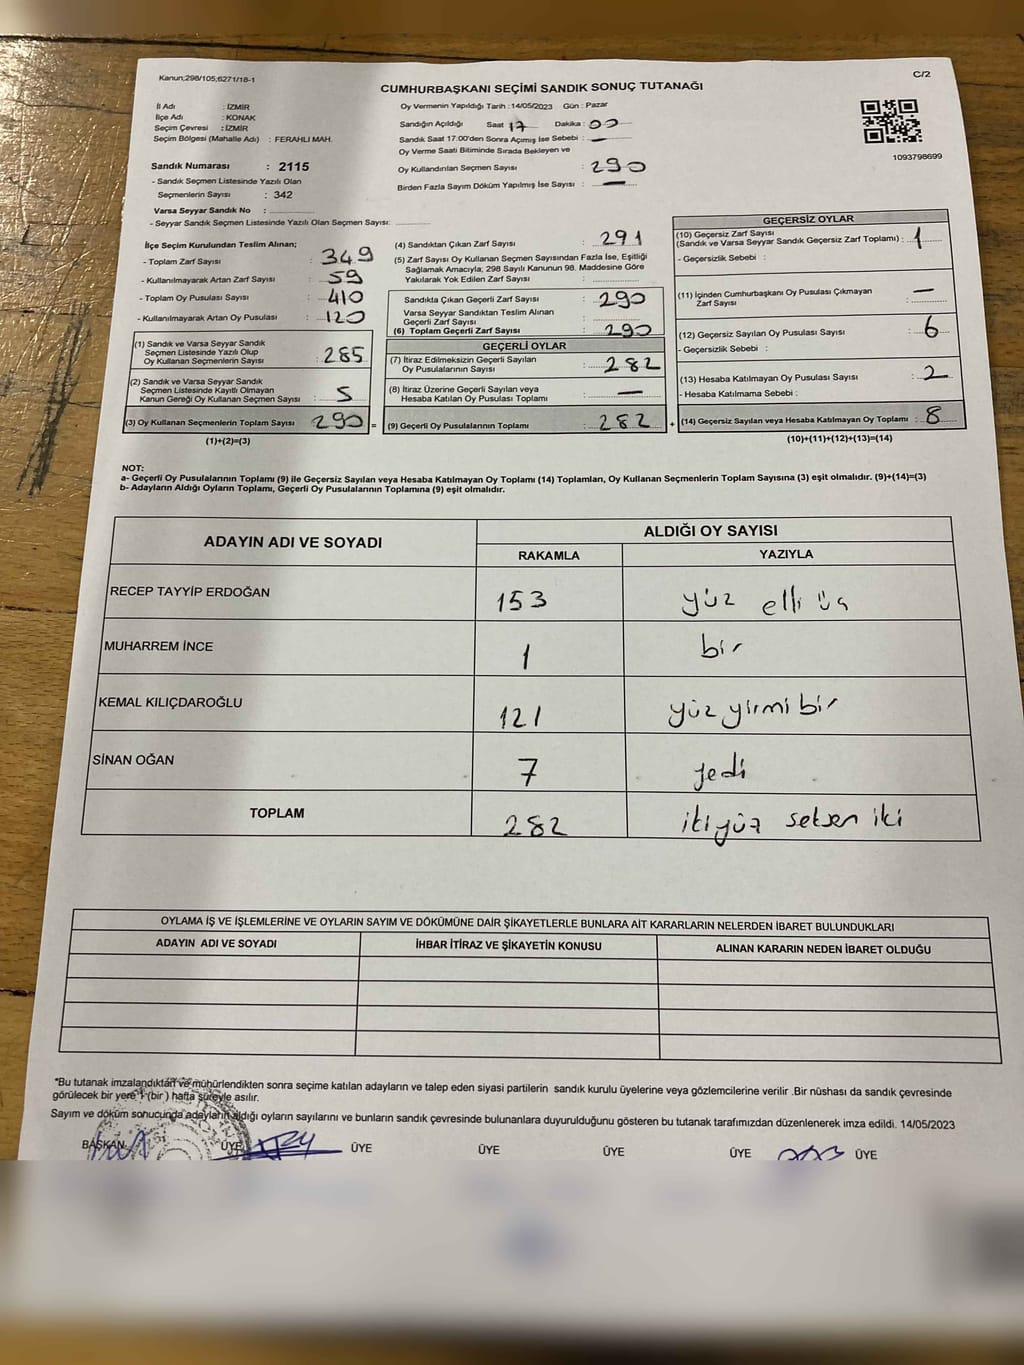 Kanun;298/105;6271/18-1
C/2
CUMHURBAŞKANI SEÇİMİ SANDIK SONUÇ TUTANAĞI
İl Adı : İZMİR
İlçe Adı : KONAK
Seçim Çevresi : İZMİR
Seçim Bölgesi (Mahalle Adı) : FERAHLI MAH.
Sandık Numarası : 2115
- Sandık Seçmen Listesinde Yazılı Olan
Seçmenlerin Sayısı : 342
Varsa Seyyar Sandık No :
- Seyyar Sandık Seçmen Listesinde Yazılı Olan Seçmen Sayısı:
Oy Vermenin Yapıldığı Tarih : 14/05/2023 Gün : Pazar
Sandığın Açıldığı Saat 17 Dakika : 00
Sandık Saat 17:00'den Sonra Açımış İse Sebebi : —
Oy Verme Saati Bitiminde Sırada Bekleyen ve
Oy Kullandırılan Seçmen Sayısı : 290
Birden Fazla Sayım Döküm Yapılmış İse Sayısı : —
1093798699
İlçe Seçim Kurulundan Teslim Alınan;
- Toplam Zarf Sayısı : 349
- Kullanılmayarak Artan Zarf Sayısı : 59
- Toplam Oy Pusulası Sayısı : 410
- Kullanılmayarak Artan Oy Pusulası : 120
(1) Sandık ve Varsa Seyyar Sandık
Seçmen Listesinde Yazılı Olup
Oy Kullanan Seçmenlerin Sayısı : 285
(2) Sandık ve Varsa Seyyar Sandık
Seçmen Listesinde Kayıtlı Olmayan
Kanun Gereği Oy Kullanan Seçmen Sayısı : 5
(3) Oy Kullanan Seçmenlerin Toplam Sayısı 290 =
(1)+(2)=(3)
(4) Sandıktan Çıkan Zarf Sayısı : 291
(5) Zarf Sayısı Oy Kullanan Seçmen Sayısından Fazla İse, Eşitliği
Sağlamak Amacıyla; 298 Sayılı Kanunun 98. Maddesine Göre
Yakılarak Yok Edilen Zarf Sayısı :
Sandıkta Çıkan Geçerli Zarf Sayısı : 290
Varsa Seyyar Sandıktan Teslim Alınan
Geçerli Zarf Sayısı :
(6) Toplam Geçerli Zarf Sayısı : 290
GEÇERLİ OYLAR
(7) İtiraz Edilmeksizin Geçerli Sayılan
Oy Pusulalarının Sayısı : 282
(8) İtiraz Üzerine Geçerli Sayılan veya
Hesaba Katılan Oy Pusulası Toplamı : —
(9) Geçerli Oy Pusulalarının Toplamı : 282 +
GEÇERSİZ OYLAR
(10) Geçersiz Zarf Sayısı
(Sandık ve Varsa Seyyar Sandık Geçersiz Zarf Toplamı) : 1
- Geçersizlik Sebebi :
(11) İçinden Cumhurbaşkanı Oy Pusulası Çıkmayan
Zarf Sayısı : —
(12) Geçersiz Sayılan Oy Pusulası Sayısı : 6
- Geçersizlik Sebebi :
(13) Hesaba Katılmayan Oy Pusulası Sayısı : 2
- Hesaba Katılmama Sebebi :
(14) Geçersiz Sayılan veya Hesaba Katılmayan Oy Toplamı : 8
(10)+(11)+(12)+(13)=(14)
NOT:
a- Geçerli Oy Pusulalarının Toplamı (9) ile Geçersiz Sayılan veya Hesaba Katılmayan Oy Toplamı (14) Toplamları, Oy Kullanan Seçmenlerin Toplam Sayısına (3) eşit olmalıdır. (9)+(14)=(3)
b- Adayların Aldığı Oyların Toplamı, Geçerli Oy Pusulalarının Toplamına (9) eşit olmalıdır.
ADAYIN ADI VE SOYADI
ALDIĞI OY SAYISI
RAKAMLA YAZIYLA
RECEP TAYYİP ERDOĞAN 153 yüz elli üç
MUHARREM İNCE 1 bir
KEMAL KILIÇDAROĞLU 121 yüz yirmi bir
SİNAN OĞAN 7 yedi
TOPLAM 282 ikiyüz seksen iki
OYLAMA İŞ VE İŞLEMLERİNE VE OYLARIN SAYIM VE DÖKÜMÜNE DAİR ŞİKAYETLERLE BUNLARA AİT KARARLARIN NELERDEN İBARET BULUNDUKLARI
ADAYIN ADI VE SOYADI İHBAR İTİRAZ VE ŞİKAYETİN KONUSU ALINAN KARARIN NEDEN İBARET OLDUĞU
*Bu tutanak imzalandıktan ve mühürlendikten sonra seçime katılan adayların ve talep eden siyasi partilerin sandık kurulu üyelerine veya gözlemcilerine verilir .Bir nüshası da sandık çevresinde
görülecek bir yere 1 (bir ) hafta süreyle asılır.
Sayım ve döküm sonucunda adayların aldığı oyların sayılarını ve bunların sandık çevresinde bulunanlara duyurulduğunu gösteren bu tutanak tarafımızdan düzenlenerek imza edildi. 14/05/2023
BAŞKAN ÜYE ÜYE ÜYE ÜYE ÜYE ÜYE